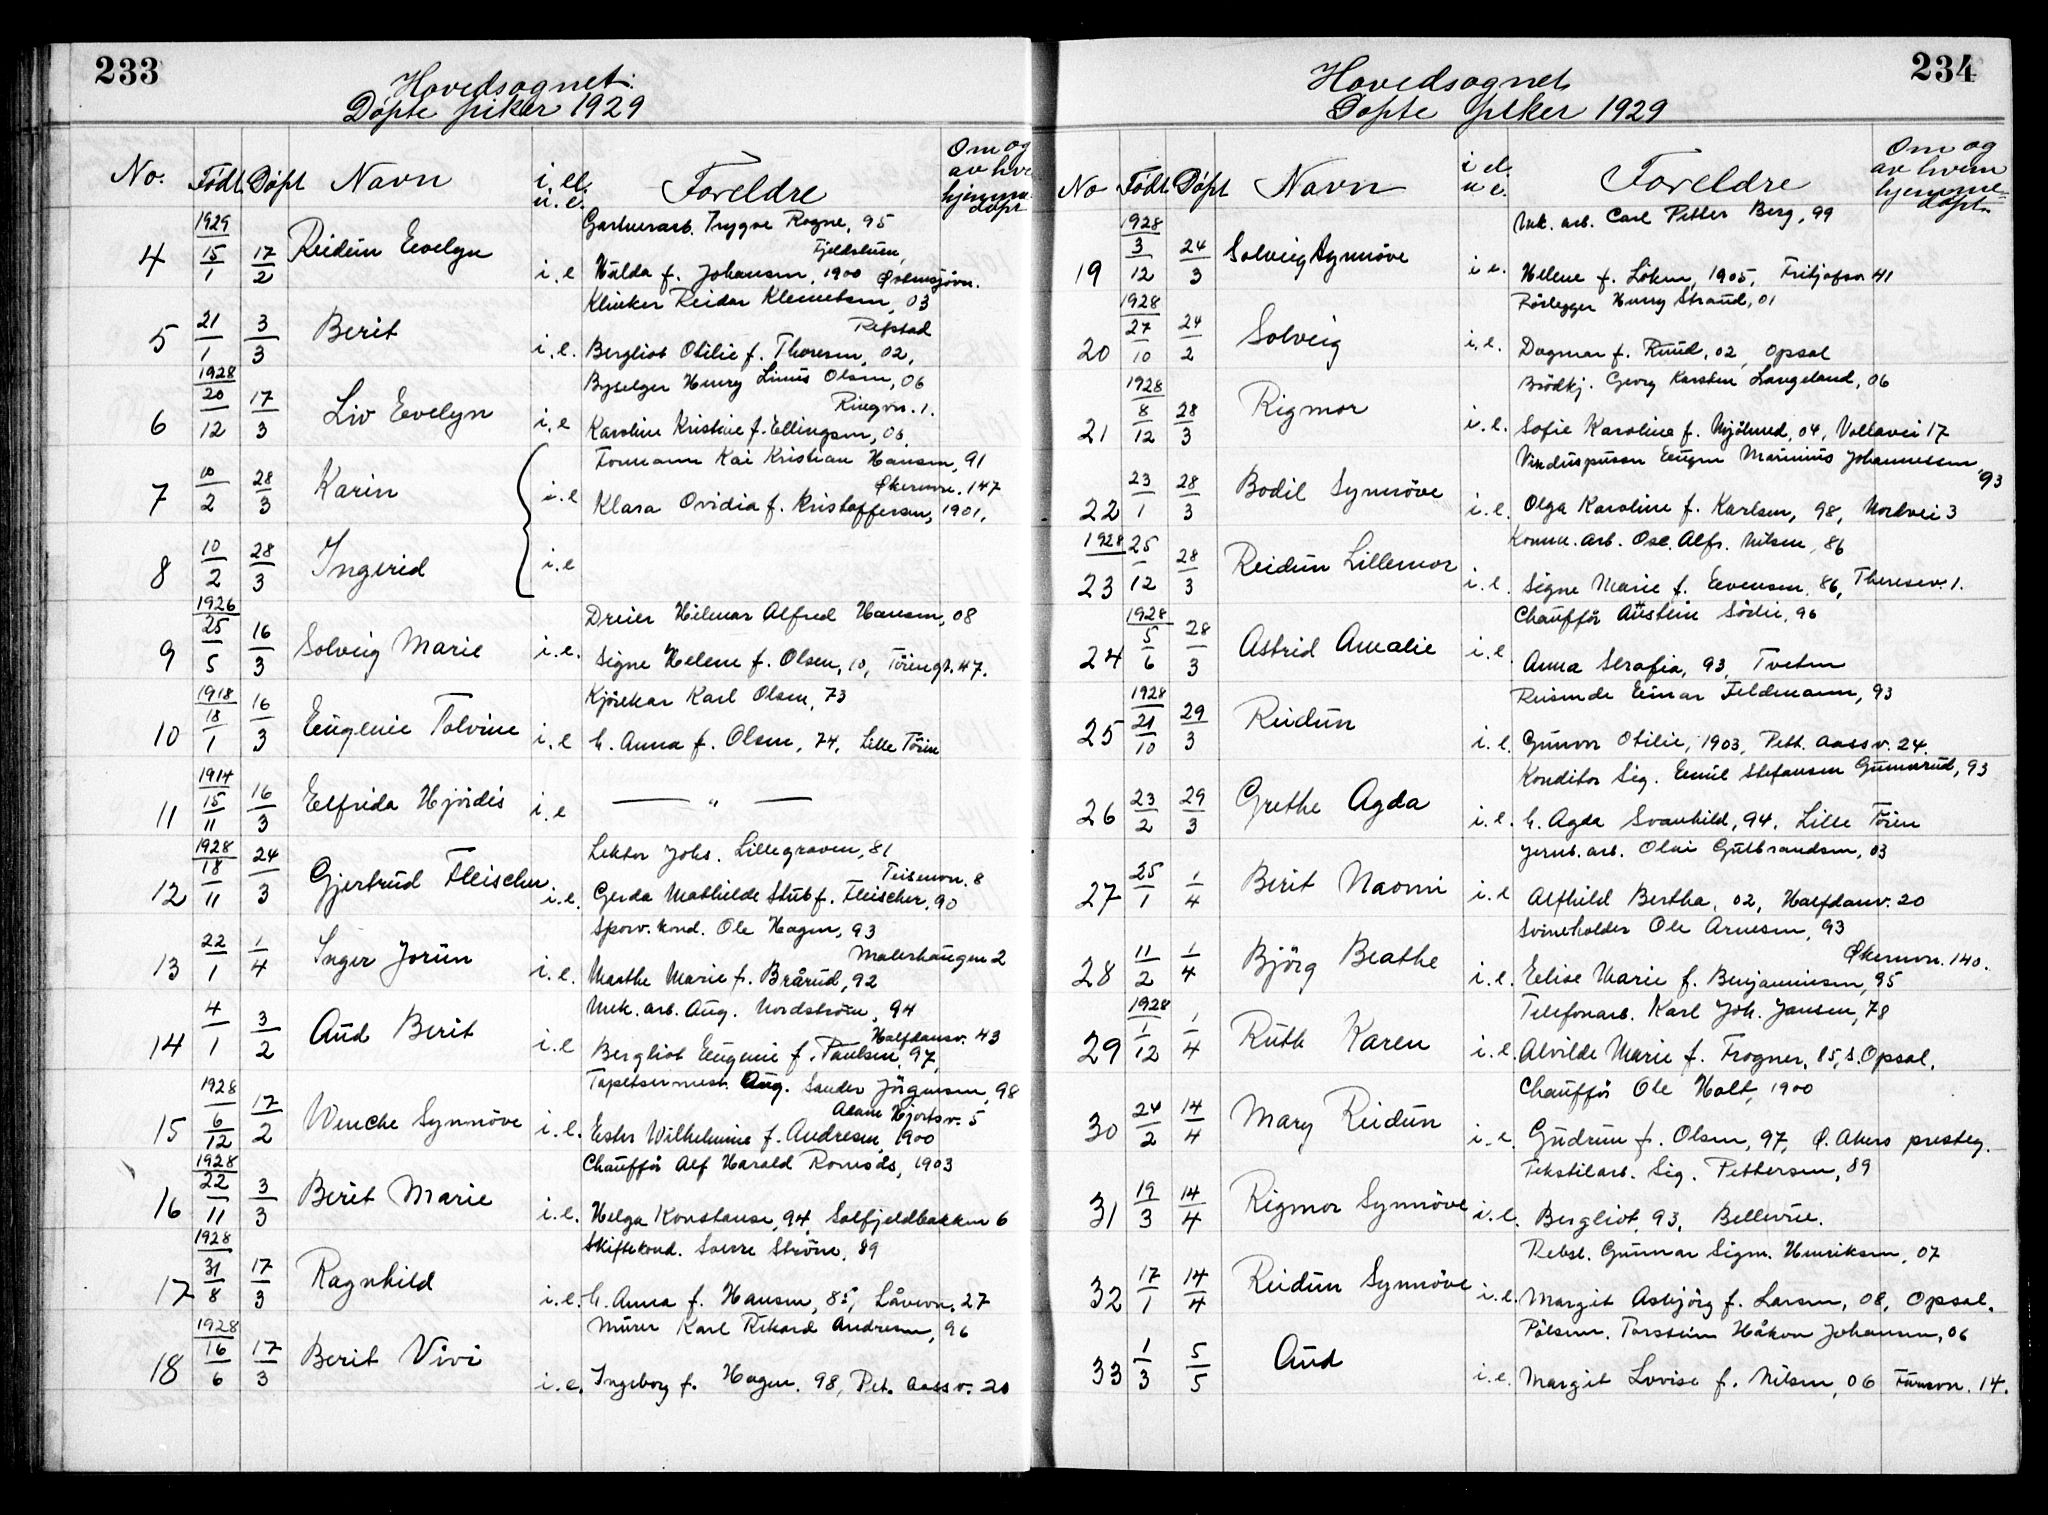 233
Hovedsognet.
Døpte piker 1929
No. Født. Døpt Navn i. el. u. e. Foreldre Om og av hve hjemme døpt
4 1929 15/1 17/2 Reidun Evelyn i. e Gartnerarb. Trygve Rogne, 95
Hulda f. Johansen, 1900 Østensjøvn.
5 21/1 3/3 Berit i. e. Klinker Reidar Klemetsen, 03
Refstad
Bergliot Otilie f. Thoresen, 02.
6 1928 20/12 17/3 Liv Evelyn i. e Byselger Henry Linus Olsen, 06
Ringvn. 1.
Karoline Kristine f. Ellingsen, 06.
7 10/2 28/3 Karin i. e Formann Kai Kristian Hansen, 91
Økernvn. 147
Klara Ovidia f. Kristoffersen, 1901.
8 10/2 28/3 Ingerid i. e
9 1926 25/5 16/3 Solveig Marie i. e. Dreier Hilmar Alfred Hansen, 08
Signe Helene f. Olsen, 10, Töiengt. 47.
10 1918 18/1 16/3 Eugenie Tolvine i. e Kjörekar Karl Olsen, 73
h. Anna f. Olsen, 74, Lille Töien
11 1914 15/11 16/3 Elfrida Hjördis i. e — " —
12 1928 18/11 24/3 Gjertrud Fleischer. i. e. Lektor Johs. Lillegraven, 81
Teisenvn. 8
Gerda Mathilde Stub f. Fleischer, 90
13 22/1 1/4 Inger Jorun i. e. Sporv. kond. Ole Hagen, 93
Malerhaugen 2
Marthe Marie f. Brårud, 92
14 4/1 3/2 Aud Berit i. e Mek. arb. Aug. Nordström, 94
Halfdansv. 43
Bergliot Eugenie f. Paulsen, 97,
15 1928 6/12 17/2 Wenche Synnöve i. e. Tapetsermest. Aug. Sander Jörgensen, 98
Adam Hjortsv. 5
Ester Wilhelmine f. Andresen, 1900
16 1928 22/11 3/3 Berit Marie i. e. Chauffør Alf Harald Romsås, 1903
Helga Konstanse, 94, Solfjeldbakken 6
17 1928 31/8 17/3 Ragnhild i. e. Skiftekond. Sverre Ström, 89
h. Anna f. Hansen, 85, Låvevn. 27
18 1928 16/6 17/3 Berit Vivi i. e. Murer Karl Rikard Andresen, 96
Ingeborg f. Hagen. 98, Pet. Aass v. 20
234
Hovedsognet
Døpte piker 1929
No Født. Døpt Navn i el. u e. Foreldre Om og av hvem hjemme- døpt.
19 1928 3/12 24/3 Solveig Synnöve i e. Mek. arb. Carl Petter Berg, 99
Helene f. Löken, 1905, Fritjofsv. 41
20 1928 27/10 24/2 Solveig i. e. Rörlegger Henry Strand, 01
Dagmar f. Ruud, 02, Opsal
21 1928 8/12 28/3 Rigmor i. e. Brödkj. Georg Karsten Langeland, 06
Sofie Karoline f. 04, Vollavei 17
22 23/1 28/3 Bodil Synnöve i. e. Vinduspusser Eugen Marinius Johannessen, 93
Olga Karoline f. Karlsen, 98, Nordvei 3
23 1928 25/12 28/3 Reidun Lillemor i. e. Komm. arb. Osc. Alfr. Nilsen, 86
Signe Marie f. Evensen, 86, Theresev. 1.
24 1928 5/6 28/3 Astrid Amalie i. e. Chauffør Austin Södie, 96
Anna Serafia, 93, Tveten
25 1928 21/10 29/3 Reidun i. e. Reisende Einar Feldmann, 93
Gunvor Otilie, 1903, Pett. Aass v. 24.
26 23/2 29/3 Grethe Agda i. e. Konditor Sig. Emil Stefansen Gunnerud, 93
h. Agda Svanhild, 94, Lille Töien
27 25/1 1/4 Berit Naomi i. e Jernb. arb. Olai Gulbrandsen, 03
Alfhild Bertha, 02, Halfdansv. 20
28 11/2 1/4 Björg Beathe i. e. Svineholder Ole Arnesen, 93
Økernvn. 140.
Elise Marie f. Benjaminsen, 95
29 1928 1/12 1/4 Ruth Karen i. e. Telefonarb. Karl Joh. Jansen, 78
Alvilde Marie f. Frogner, 85, S. Opsal.
30 24/2 14/4 Mary Reidun i. e. Chauffør Ole Holt, 1900
Gudrun f. Olsen, 97, Ø. Akers presteg.
31 19/3 14/4 Rigmor Synnöve i. e. Tekstilarb. Sig. Pettersen, 89
Bergliot, 93, Bellevue.
32 17/1 14/4 Reidun Synnöve i. e. Rebsl. Gunnar Sigm. Henriksen, 07
Margit Asbjörg f. Larsen, 08, Opsal.
33 1/3 5/5 Aud i. e. Pölsem. Torstein Håkon Johansen, 06
Margit Lovise f. Nilsen, 06 14.